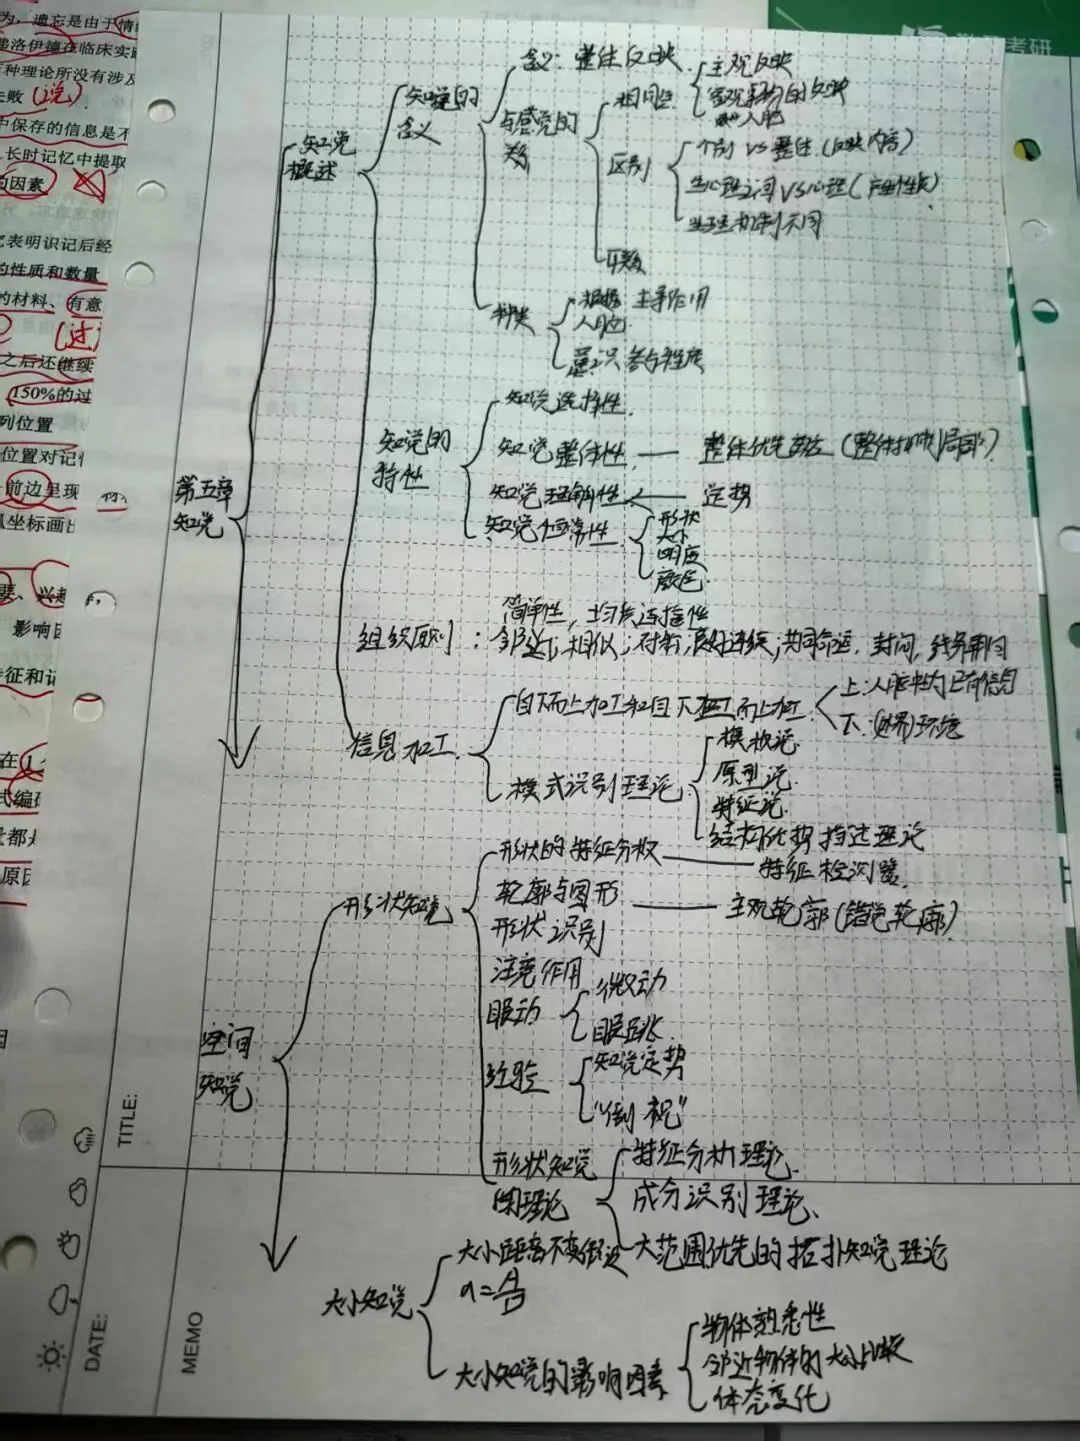 为，遗忘是由于情
弗洛伊德在临床实践
种理论所没有涉及
失败
中保存的信息是不
长时记忆中提取
因素
表明识记后经
的性质和数量
的材料、有意
(过
之后还继续
150%的过
列位置
位置对记忆
前边呈现
坐标画出
要、兴趣
影响因
特征和记
在1个
式编码
都是
原因
考研
第五章
知觉
知觉
概述
知觉的
含义
含义：整体反映
与感觉的
关系
相同性
主观反映
客观事物的反映
人脑
区别
个别 VS 整体（反映内容）
生心理之间 VS 心理（产生性质）
生理机制不同
联系
种类
根据 主导作用
人脑
意识参与程度
知觉的
特性
知觉选择性
知觉整体性 — 整体优先效应（整体抑制局部）
知觉理解性 — 定势
知觉恒常性
形状
大小
明度
颜色
简单性，均质连接性
组织原则：邻近；相似；对称；良好连续；共同命运，封闭，线条朝向
信息加工
自下而上加工和自下而上加工
上：人脑中的已有信息
下：（外界）环境
模式识别理论
模板说
原型说
特征说
结构优势描述理论
空间
知觉
形状知觉
形状的特征分析 — 特征检测器
轮廓与图形 — 主观轮廓（错觉轮廓）
形状识别
注意作用
眼动
微动
眼跳
经验
知觉定势
“倒视”
形状知觉
的理论
特征分析理论
成分识别理论
大范围优先的拓扑知觉理论
大小知觉
大小距离不变假说
a=A/D
大小知觉的影响因素
物体熟悉性
邻近物体的大小比较
体态变化
TITLE:
DATE:
MEMO